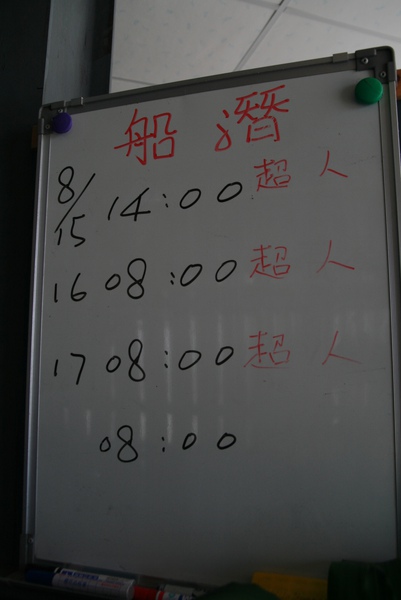 船潛
8/15 14:00 超人
16 08:00 超人
17 08:00 超人
08:00